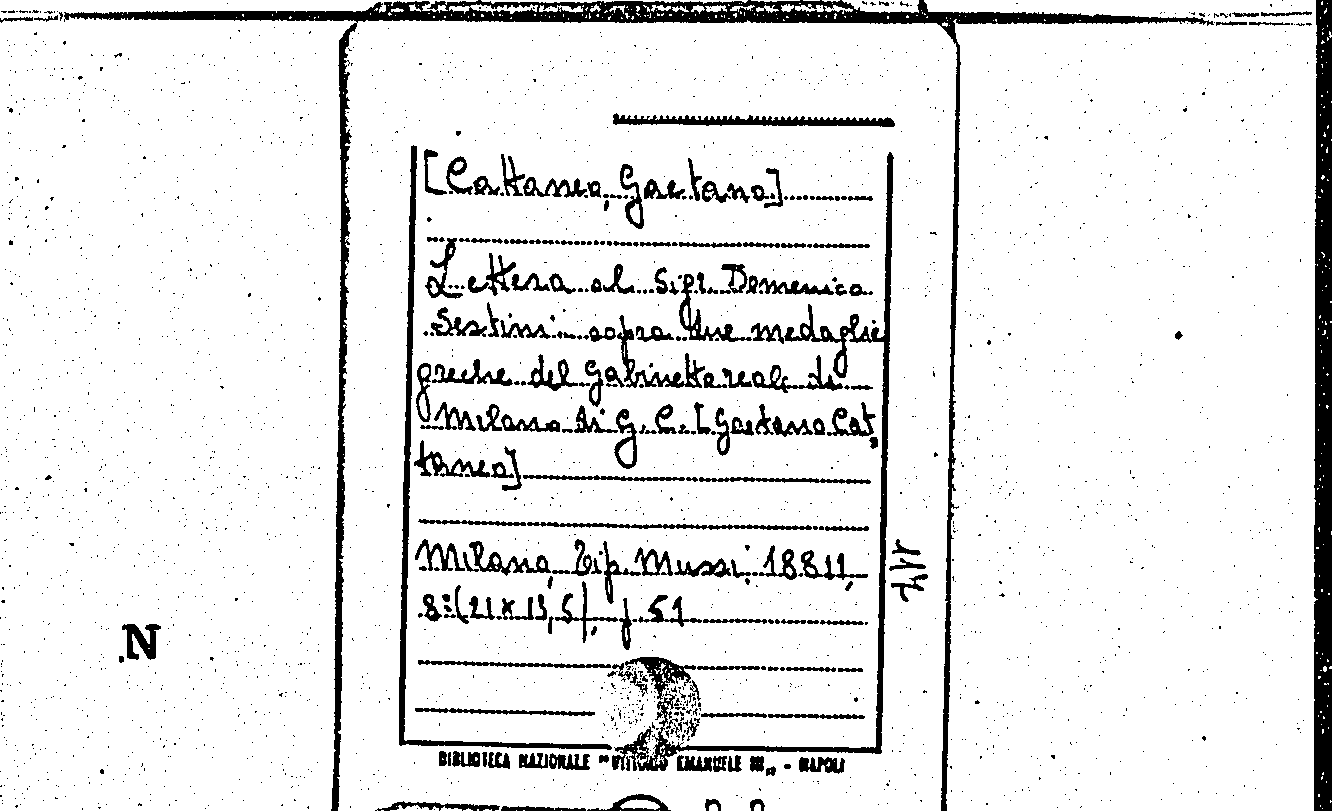 [Cattaneo, Gaetano]
Lettera al Sigr. Domenico
Sestini sopra due medaglie
greche del Gabinetto reale di
Milano di G. C. [Gaetano Cat,
taneo]
Milano, Tip. Mussi, 18811,
8:(21 x 13,5), p. 51
N
BIBLIOTECA NAZIONALE "VITTORIO EMANUELE III" - NAPOLI